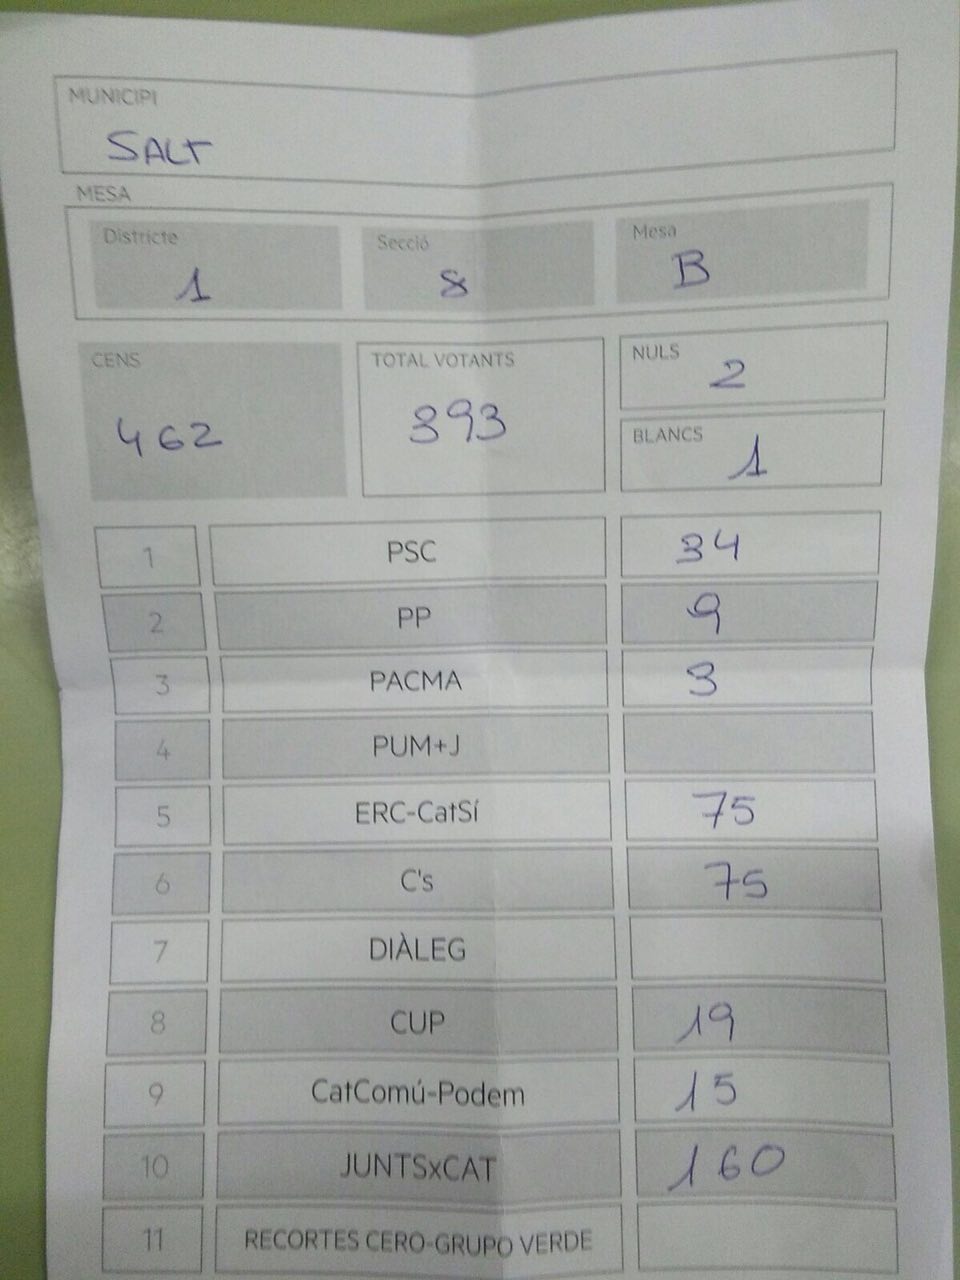 MUNICIPI
SALT
MESA
Districte Secció Mesa
1 8 B
CENS TOTAL VOTANTS NULS
462 393 2
BLANCS
1
1 PSC 34
2 PP 9
3 PACMA 3
4 PUM+J
5 ERC-CatSí 75
6 C's 75
7 DIÀLEG
8 CUP 19
9 CatComú-Podem 15
10 JUNTSxCAT 160
11 RECORTES CERO-GRUPO VERDE